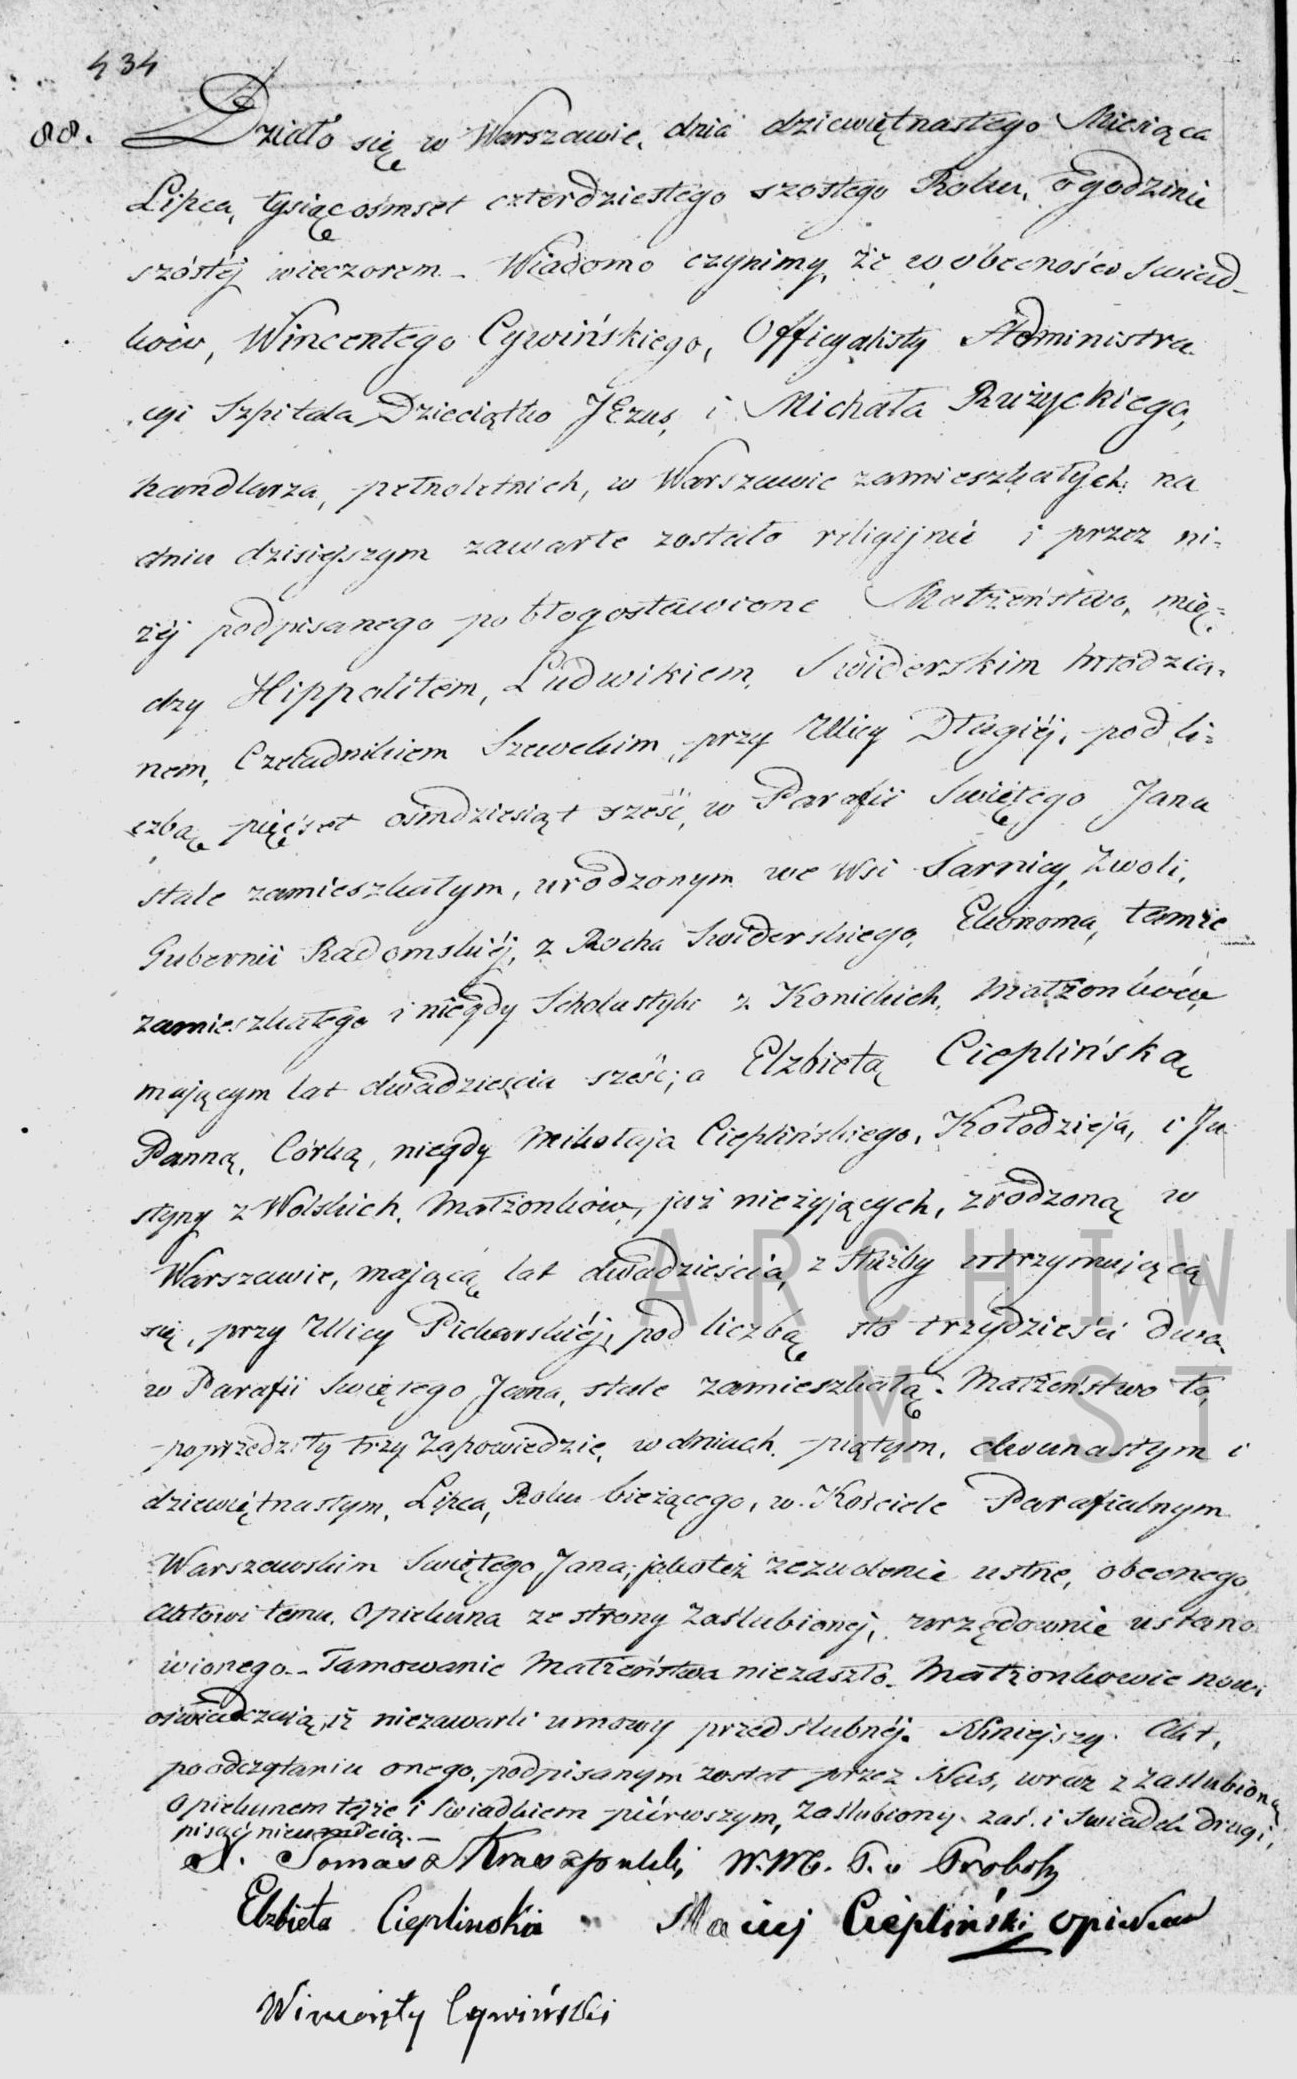 434
88. Działo się w Warszawie, dnia dziewiętnastego Miesiąca
Lipca, tysiąc ośmset czterdziestego szóstego Roku, o godzinie
szóstéj wieczorem – Wiadomo czynimy, że w obecności Swiad-
ków, Wincentego Cywińskiego, Officyalisty Administra-
cyi Szpitala Dzieciątko JEzus, i Michała Rużyckiego,
handlarza, pełnoletnich, w Warszawie zamieszkałych: na
dniu dzisiejszym zawarte zostało religijnie i przez ni-
żéj podpisanego pobłogosławione Małżeństwo, mię-
dzy Hippolitem, Ludwikiem, Swiderskim Młodzia-
nem, Czeladnikiem Szewckim, przy Ulicy Długiéj, pod li-
czbą pięćset ośmdziesiąt sześć, w Parafii Swiętego Jana
stale zamieszkałym, urodzonym we Wsi Sarnicy Zwoli,
Gubernii Radomskiéj, z Rocha Swiderskiego, Ekonoma, tamże
zamieszkałego i niegdy Scholastyki z Konickich, Małżonków,
mającym lat dwadzieścia sześć; a Elzbietą Cieplińską
Panną, Córką, niegdy Mikołaja Cieplińskiego, Kołodzieja, i Ju-
styny z Wolskich, Małżonków, już nieżyjących, zrodzoną w
Warszawie, mającą lat dwadzieścia, z służby utrzymującą
się, przy Ulicy Piekarskiéj, pod liczbą sto trzydzieści dwa,
w Parafii Swiętego Jana, stale zamieszkałą. Małżeństwo to,
poprzedziły trzy Zapowiedzie, w dniach piątym, dwunastym i
dziewiętnastym, Lipca, Roku bieżącego, w Kościele Parafialnym
Warszawskim Swiętego Jana; jakoteż zezwolenie ustne, obecnego
Aktowi temu, Opiekuna ze strony Zaślubionej, urzędownie ustano-
wionego – Tamowanie Małżeństwa niezaszło. Małżonkowie nowi
oświadczają, iż niezawarli umowy przedślubnéj. Niniejszy Akt,
po odczytaniu onego, podpisanym został przez Nas, wraz z Zaślubioną
Opiekunem tejże i Swiadkiem piérwszym, Zaślubiony zaś i Swiadek drugi,
pisać nieumieją. –
X. Tomasz W. M. P. Proboszcz
Elzbieta Cieplinska Maciej Ciepliński opiekun
Wincenty Cywiński
ARCHIWU
M. ST